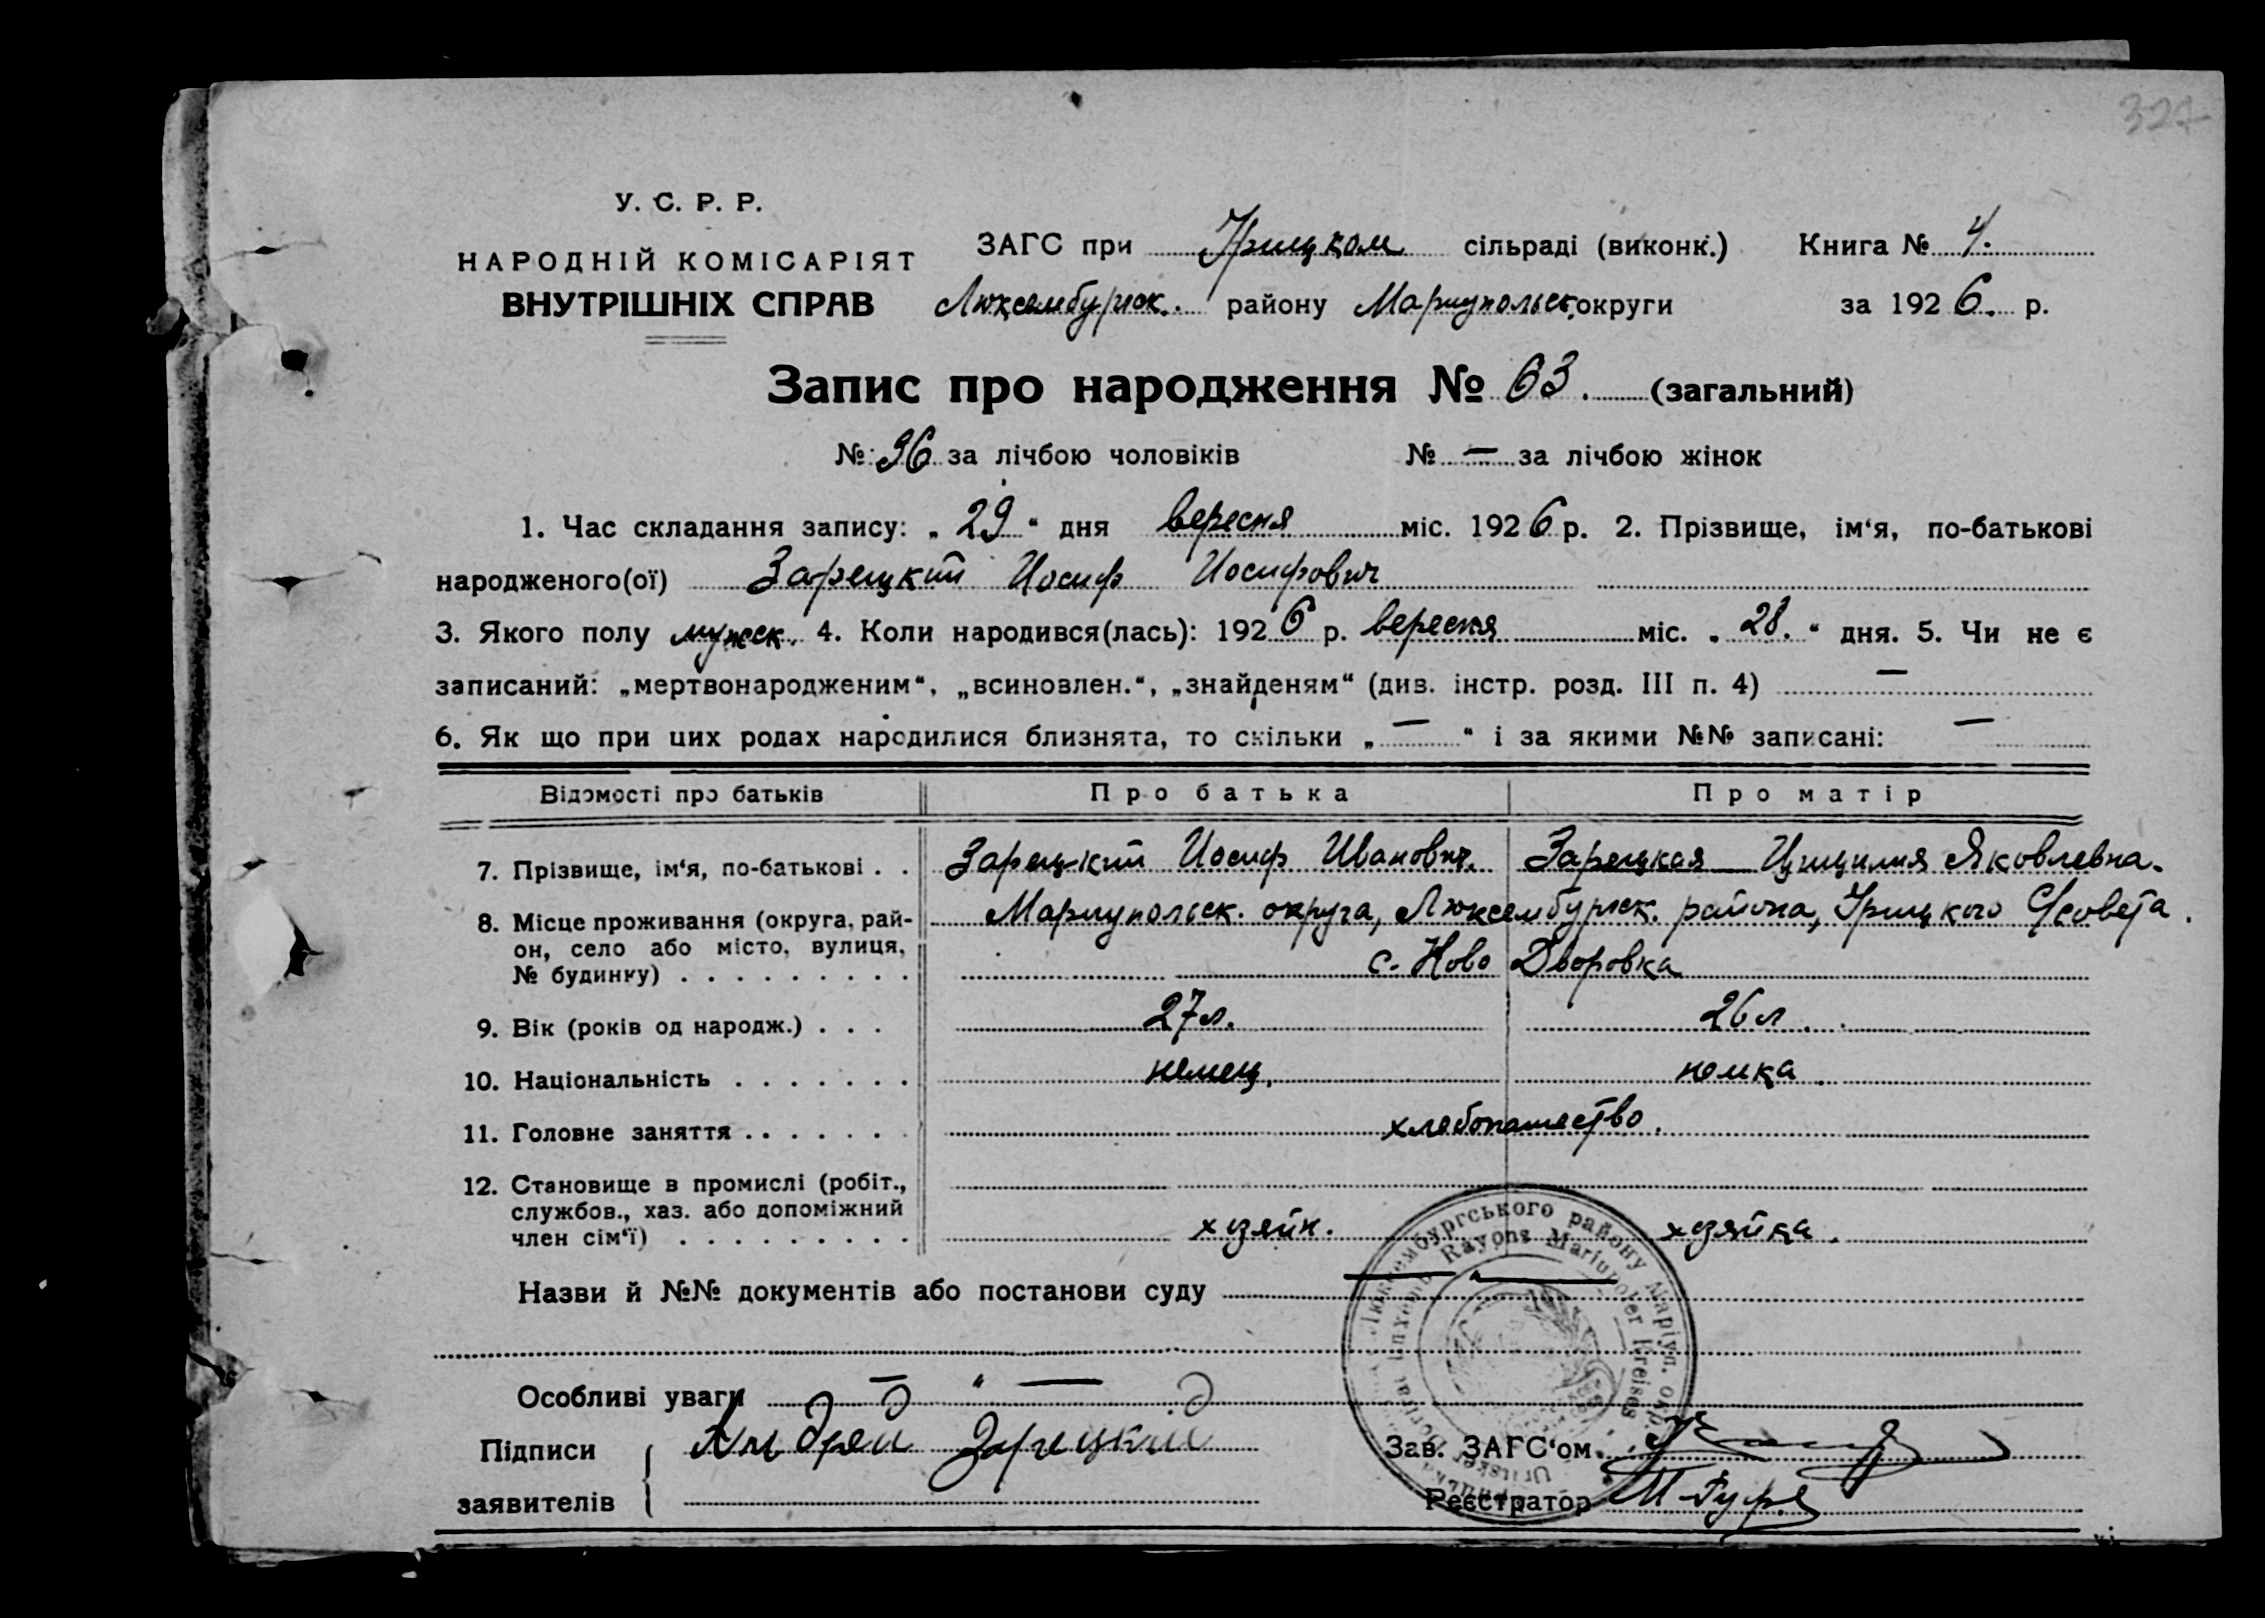 327
У. С. Р. Р.
НАРОДНІЙ КОМІСАРІЯТ
ВНУТРІШНІХ СПРАВ
ЗАГС при Урицком сільраді (виконк.) Книга № 4.
Люксембургск. району Мариупольск. округи за 1926. р.
Запис про народження № 63. (загальний)
№ 36 за лічбою чоловіків № — за лічбою жінок
1. Час складання запису: „ 29 “ дня вересня міс. 1926 р. 2. Прізвище, ім‘я, по-батькові
народженого(ої) Зарецкий Иосиф Иосифович
3. Якого полу мужск. 4. Коли народився(лась): 1926 р. вересня міс. „ 28. “ дня. 5. Чи не є
записаний: „мертвонародженим“, „всиновлен.“, „знайденям“ (див. інстр. розд. III п. 4) —
6. Як що при цих родах народилися близнята, то скільки „ — “ і за якими №№ записані: —
Відомості про батьків Про батька Про матір
7. Прізвище, ім‘я, по-батькові . . Зарецкий Иосиф Иванович. Зарецкая Цицилия Яковлевна.
8. Місце проживання (округа, рай- Мариупольск. округа, Люксембургск. района, Урицкого С/совета.
он, село або місто, вулиця, с. Ново Дворовка
№ будинку) . . . . . . . . .
9. Вік (років од народж.) . . . 27 л. 26 л.
10. Національність . . . . . . . немец. немка.
11. Головне заняття . . . . . . . хлебопашество.
12. Становище в промислі (робіт.,
службов., хаз. або допоміжний
член сім‘ї) . . . . . . . . . хозяин. хозяйка.
Назви й №№ документів або постанови суду — " —
Особливі уваги — " —
Підписи Андрей Зарецкий Зав. ЗАГС‘ом
заявителів Реєстратор
Люксембургського району Маріуп. окр.
Rayons Mariupoler Kreises